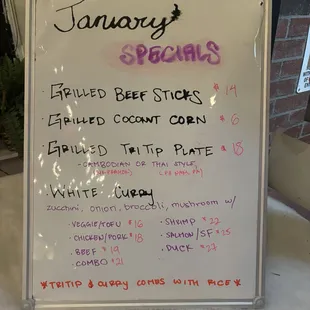 January
SPECIALS
• GRILLED BEEF STICKS $14
• GRILLED COCONUT CORN $6
• GRILLED TRI TIP PLATE $18
- CAMBODIAN OR THAI STYLE
WHITE CURRY
zucchini, onion, broccoli, mushroom w/
• VEGGIE/TOFU $16 • SHRIMP $22
• CHICKEN/PORK $18 • SALMON/SF $25
• BEEF $19 • DUCK $27
• COMBO $21
*TRITIP & CURRY COMBS WITH RICE*